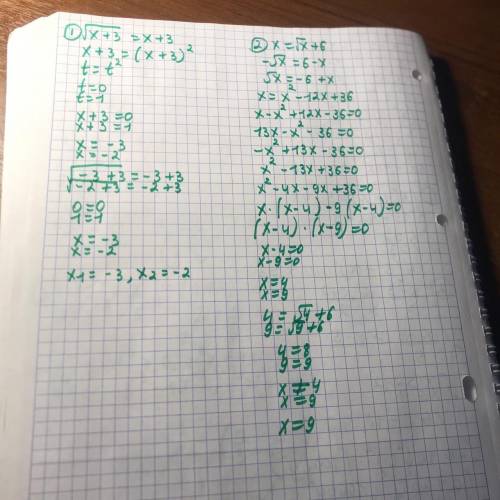 ① √x+3 = x+3
x+3=(x+3)²
t=t²
t=0
t=1
x+3=0
x+3=1
x=-3
x=-2
√-3+3=-3+3
√-2+3=-2+3
0=0
1=1
x=-3
x=-2
x1=-3, x2=-2
② x=√x+6
-√x=6-x
√x=-6+x
x=x²-12x+36
x-x²+12x-36=0
13x-x²-36=0
-x²+13x-36=0
x²-13x+36=0
x²-4x-9x+36=0
x·(x-4)-9(x-4)=0
(x-4)·(x-9)=0
x-4=0
x-9=0
x=4
x=9
4=√4+6
9=√9+6
4=8
9=9
x≠4
x=9
x=9